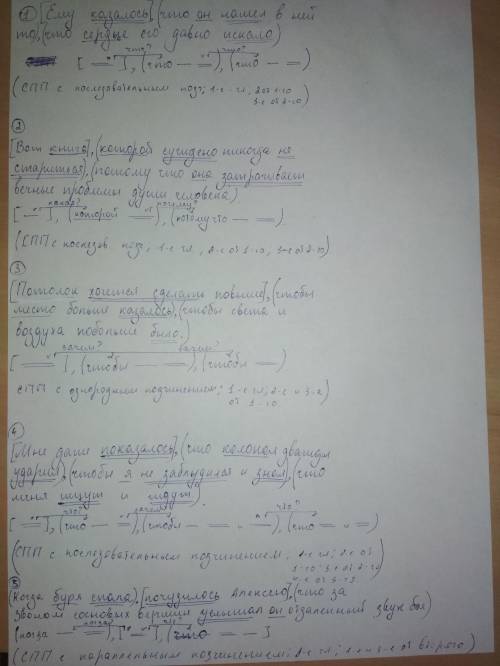 ① [Ему казалось], (что он нашел в ней
то), (что сердце его давно искало)
что? что?
[ = ], (что — =), (что — =)
(СПП с последовательным подч; 1-е - гл, 2 от 1-го
3-е от 2-го)
②
[Вот книга], (которой суждено никогда не
стариться), (потому что она затрагивает
вечные проблемы души человека).
какая? почему?
[ — ], (которой =), (потому что — =).
(СПП с послед. подч, 1-е гл, 2-е от 1-го, 3-е от 2-го)
③
[Потолок хочется сделать повыше], (чтобы
место больше казалось), (чтобы света и
воздуха побольше было.)
зачем? зачем?
[ = ], (чтобы — =), (чтобы — =)
СПП с однородным подчинением; 1-е гл; 2-е и 3-е
от 1-го
④
[Мне даже показалось], (что колокол дважды
ударил), (чтобы я не заблудился и знал), (что
меня ищут и ждут).
что? зачем? что?
[ = ], (что — =), (чтобы — = и =), (что = и =)
(СПП с последовательным подчинением; 1-е гл; 2-е от
1-го; 3-е от 2-го
4-е от 3-го
⑤
(Когда буря спала), [почудилось Алексею], (что за
звоном сосновых вершин услышал он отдаленный звук боя)
когда? что?
(когда — =), [ = ], (что = —)
(СПП с параллельным подчинением; 1-е и 3-е от второго)